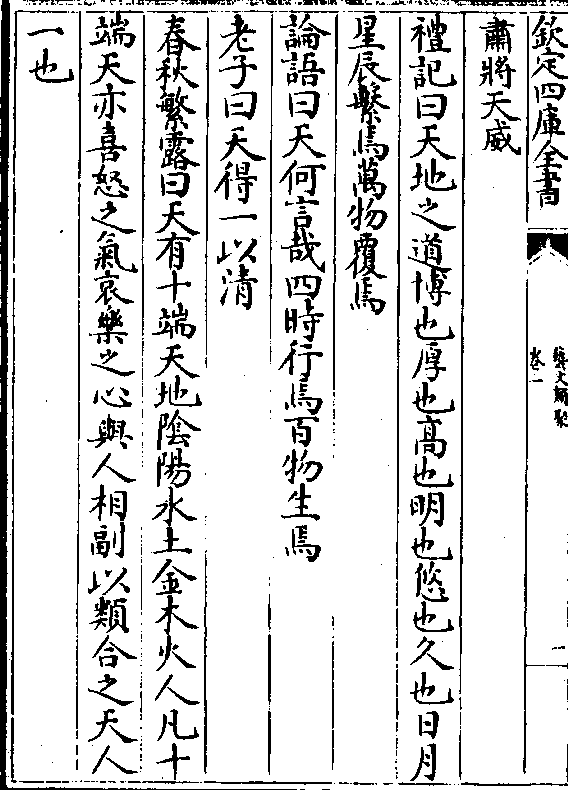 欽定四庫全書
藝文類聚
卷一
一
肅將天威
禮記曰天地之道博也厚也髙也明也悠也久也日月
星辰繫焉萬物覆焉
論語曰天何言哉四時行焉百物生焉
老子曰天得一以清
春秋繁露曰天有十端天地陰陽水土金木火人凡十
端天亦喜怒之氣哀樂之心與人相副以類合之天人
一也